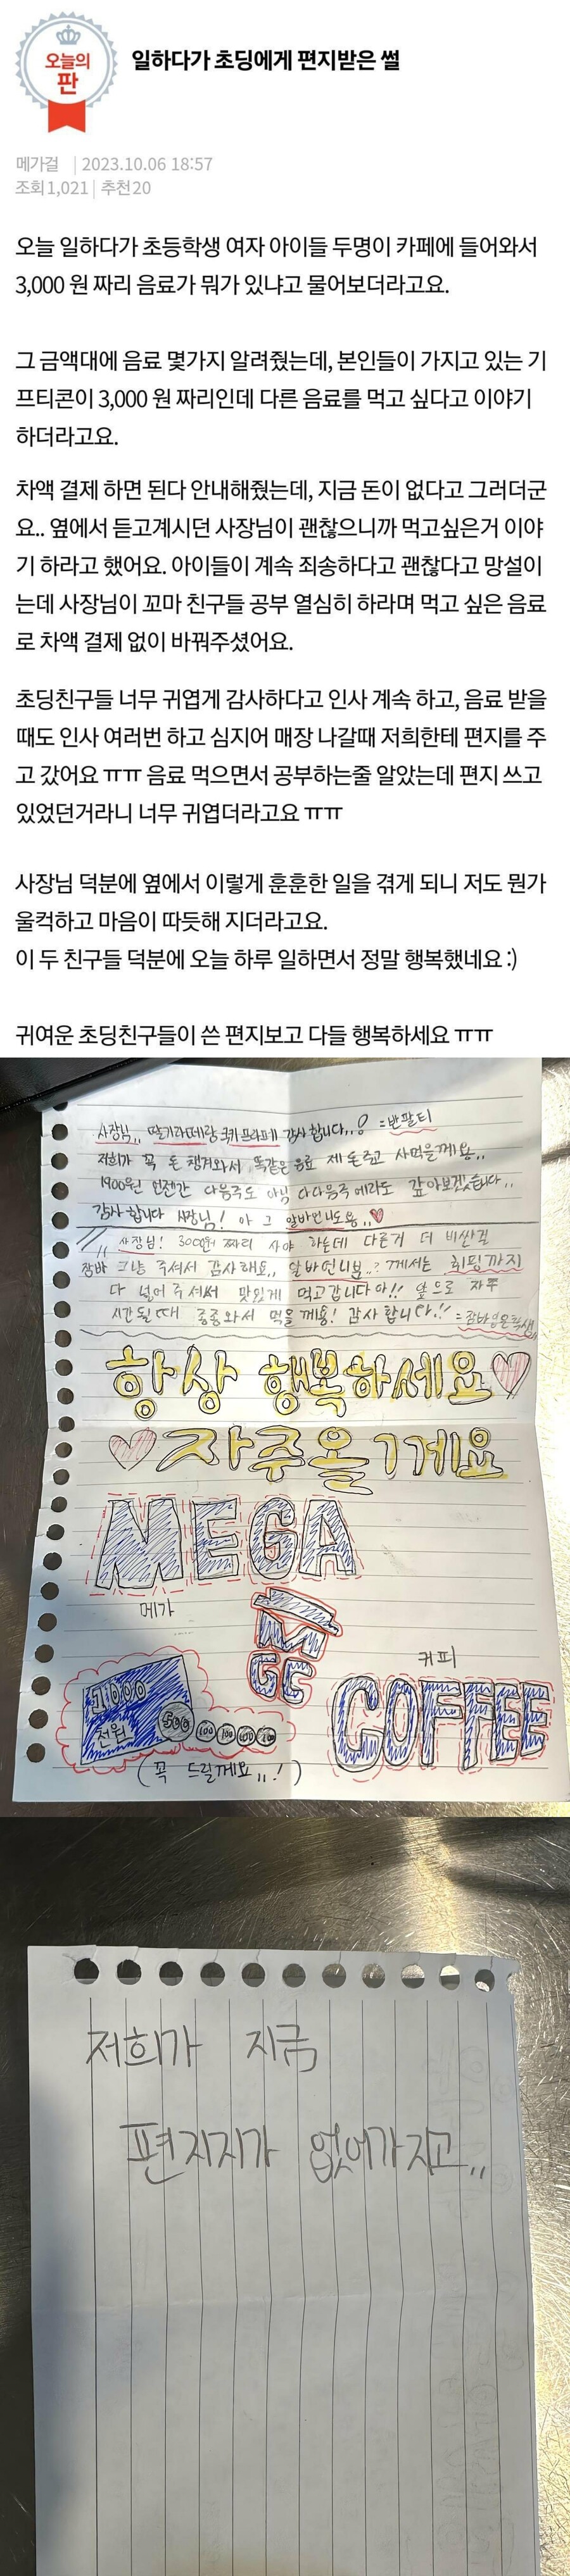 오늘의
판
일하다가 초딩에게 편지받은 썰
메가걸 | 2023.10.06 18:57
조회 1,021 | 추천 20
오늘 일하다가 초등학생 여자 아이들 두명이 카페에 들어와서
3,000 원 짜리 음료가 뭐가 있냐고 물어보더라고요.
그 금액대에 음료 몇가지 알려줬는데, 본인들이 가지고 있는 기
프티콘이 3,000 원 짜리인데 다른 음료를 먹고 싶다고 이야기
하더라고요.
차액 결제 하면 된다 안내해줬는데, 지금 돈이 없다고 그러더군
요.. 옆에서 듣고계시던 사장님이 괜찮으니까 먹고싶은거 이야
기 하라고 했어요. 아이들이 계속 죄송하다고 괜찮다고 망설이
는데 사장님이 꼬마 친구들 공부 열심히 하라며 먹고 싶은 음료
로 차액 결제 없이 바꿔주셨어요.
초딩친구들 너무 귀엽게 감사하다고 인사 계속 하고, 음료 받을
때도 인사 여러번 하고 심지어 매장 나갈때 저희한테 편지를 주
고 갔어요 ㅠㅠ 음료 먹으면서 공부하는줄 알았는데 편지 쓰고
있었던거라니 너무 귀엽더라고요 ㅠㅠ
사장님 덕분에 옆에서 이렇게 훈훈한 일을 겪게 되니 저도 뭔가
울컥하고 마음이 따듯해 지더라고요.
이 두 친구들 덕분에 오늘 하루 일하면서 정말 행복했네요 :)
귀여운 초딩친구들이 쓴 편지보고 다들 행복하세요 ㅠㅠ
사장님,, 딸기라떼랑 쿠키프라페 감사합니다,,! =반팔티
저희가 꼭 돈 챙겨와서 똑같은 음료 제돈주고 사먹을께용,,
1900원 언젠간 다음주도 아님 다다음주 에라도 갚아보겠습니다,,
감사합니다 사장님! 아 그 알바언니도용,,♥
사장님! 3000원 짜리 사야 하는데 다른거 더 비싼걸
그냥 주셔서 감사해요,, 알바언니분..? 께서는 휘핑까지
다 넣어주셔써 맛있게 먹고갑니다아!! 앞으로 자주
시간될때 종종와서 먹을께용! 감사합니다!! =잠바입은학생,,
항상 행복하세요♥
♥자주올게요
MEGA
메가
MGC
커피
COFFEE
1000
천원
500 100 100 100 100
(꼭 드릴께요,,!)
저희가 지금
편지지가 없어가지고,,